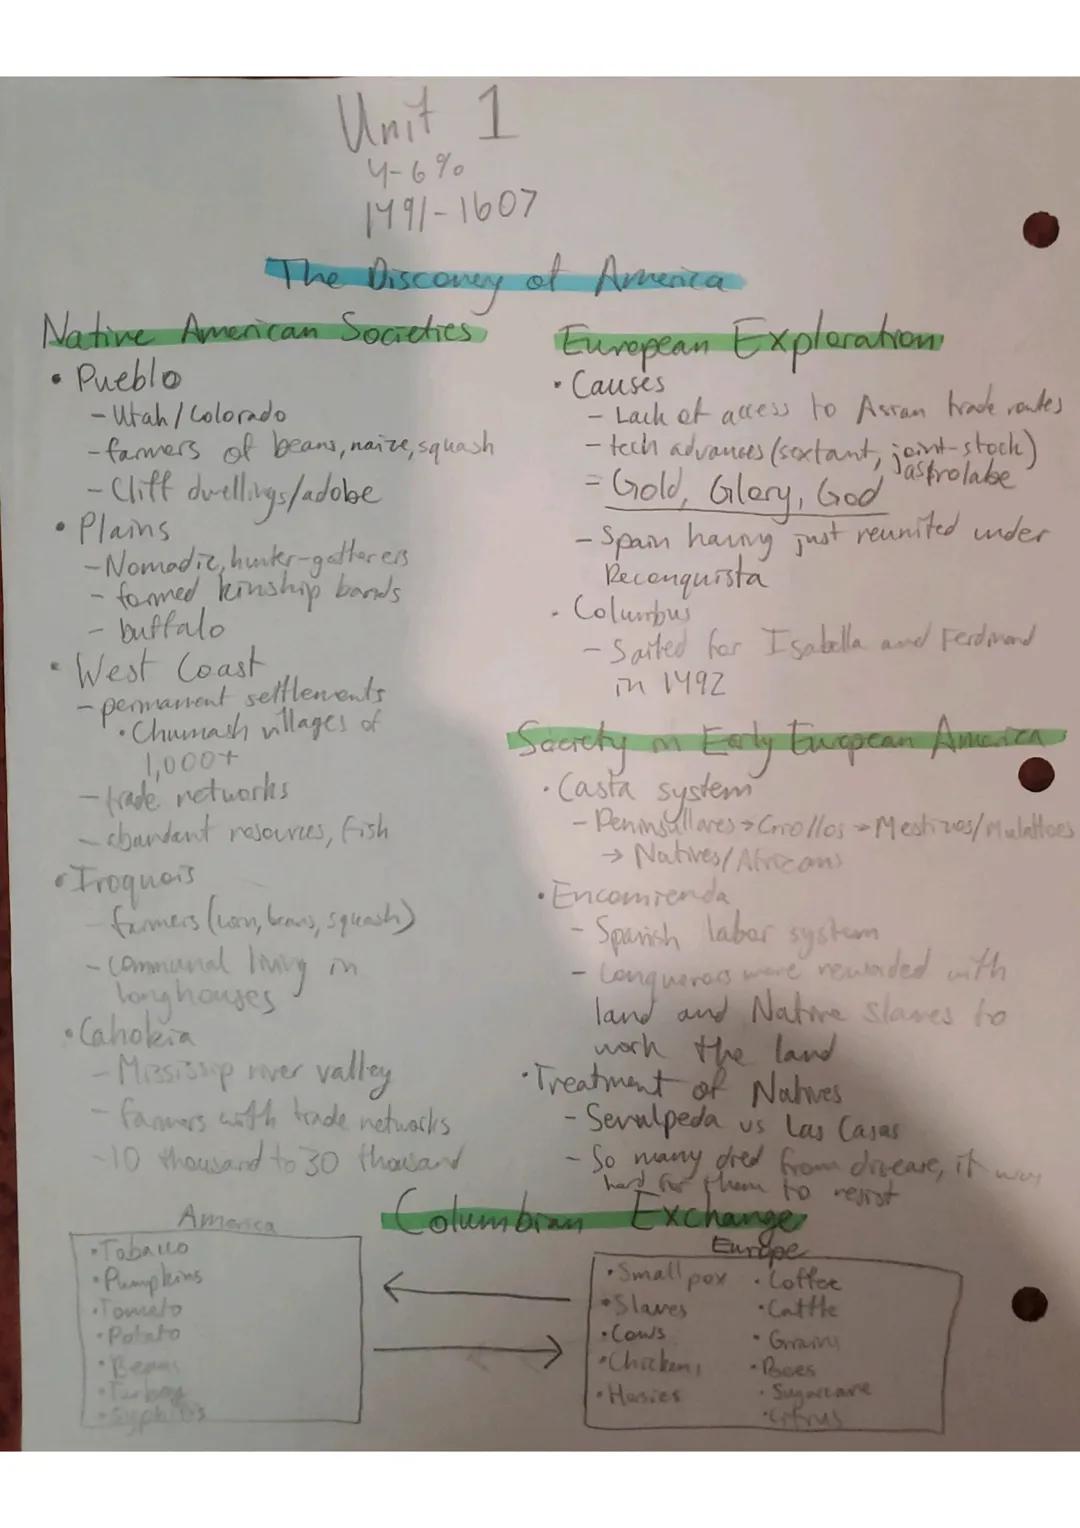 Unit 1
4-6%
1491-1607
The Discovery of America
Native American Societies
• Pueblo
- Utah/Colorado
- farmers of beans, maize, squash
- Cliff dwellings/adobe
• Plains
- Nomadic, hunter-gatherers
- formed kinship bands
- buffalo
• West Coast
- permanent settlements
• Chumash villages of
1,000+
- trade networks
- abundant resources, fish
• Iroquois
- farmers (corn, beans, squash)
- communal living in
longhouses
• Cahokia
- Mississip river valley
- farmers with trade networks
- 10 thousand to 30 thousand
European Exploration
• Causes
- Lack of access to Asian trade routes
- tech advances (sextant, joint-stock)
astrolabe
= Gold, Glory, God
- Spain having just reunited under
Reconquista
• Columbus
- Sailed for Isabella and Ferdinand
in 1492
Society in Early European America
• Casta system
- Peninsullares → Criollos → Mestizos/Mulattoes
→ Natives/Africans
• Encomienda
- Spanish labor system
- Conquerors were rewarded with
land and Native slaves to
work the land
• Treatment of Natives
- Sevulpeda vs Las Casas
- So many died from disease, it was
hard for them to resist
Columbian Exchange
America
• Tobacco
• Pumpkins
• Tomato
• Potato
• Beans
• Turkey
• Syphilis
Europe
• Smallpox
• Slaves
• Cows
• Chickens
• Horses
• Coffee
• Cattle
• Grains
• Bees
• Sugarcane
• Citrus